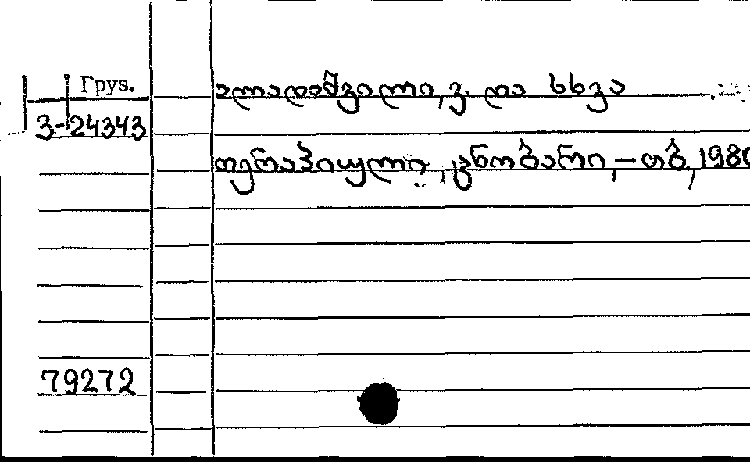 Груз.
ალადაშვილი, ვ. და სხვა
3-24343
თერაპიული ცნობარი, – თბ, 1980
79272